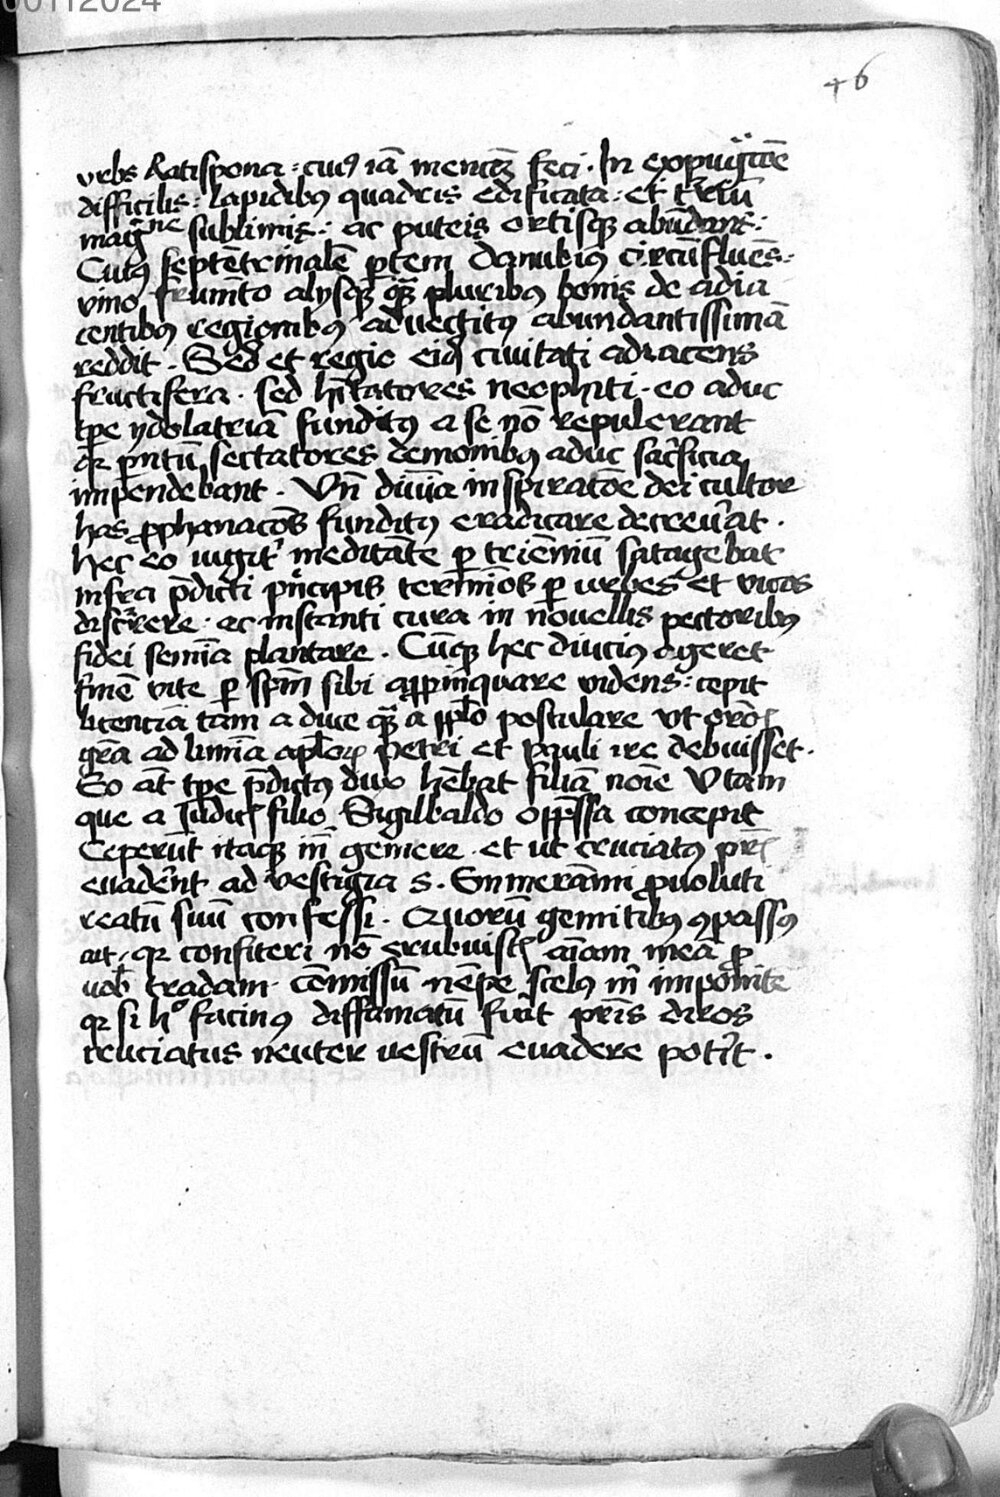 00112024
46
vrbs Ratispona : cuiꝰ iā mencōꝫ feci . In expuḡcōe
difficilis : lapidibꝰ quadris edificata : et t̄riū
mag̃ne sublimis : ac puteis ortisqꝫ abūdans :
Cuiꝰ septētrīnalē ꝑtem danubiꝰ circūfluēs :
vino frumēto alijsqꝫ qꝫ̄ pluribꝰ bonis de adia
centibꝰ regionibꝰ advectitꝰ abundantissimā
reddit . Sed et regio eidē ciuitati adiacens
fructifera . sed hītatores neophiti . eo aduc
tp̄e ydolatriā funditꝰ a se nō repulerant
qꝛ pn̄tū sectatores demonibꝰ aduc sac̄ficia
impendebant . Vn̄ diuīa inspiratōe dei cultor
has ꝓphanacōēs funditꝰ eradicare decreūat .
hec eo iugit̄ meditāte ꝑ triēniū satagebat
infra p̄dicti pn̄cipis terminos ꝑ vrbes et vicos
discr̄rere . ac instanti cura in nouellis pectoribꝰ
fidei semīa plantare . Cūqꝫ hec diuciꝰ ageret
finē vite ꝑ spm̄ sibi apꝓpinquare videns : cepit
licenciā tam a duce qꝫ̄ a pp̄lo postulare vt orōis
gr̄a ad limīa apl̄oꝝ petri et pauli ire debuisset .
Eo āt tp̄e p̄dictꝰ dux hēbat filiā noīe Vtam
que a Iudicis filio Sigilbaldo opp̄ssa concepit
Ceperūt itaqꝫ in̄ gemere . et ut cruciatꝰ pr̄is
euadērnt ad vestigia S . Emmerāmi ꝓuoluti
reatū suū confessi . Quorū gemitibꝰ ꝯpassꝰ
ait . qꝛ confiteri nō erubuistis aīam meā ꝓ
uob̄ tradam . cōmissū nēpe scelꝰ m̄ imponite
qꝛ si h° facinꝰ diffamatū fūit pr̄is diros
cruciatus neuter vestrū euadere potīt .